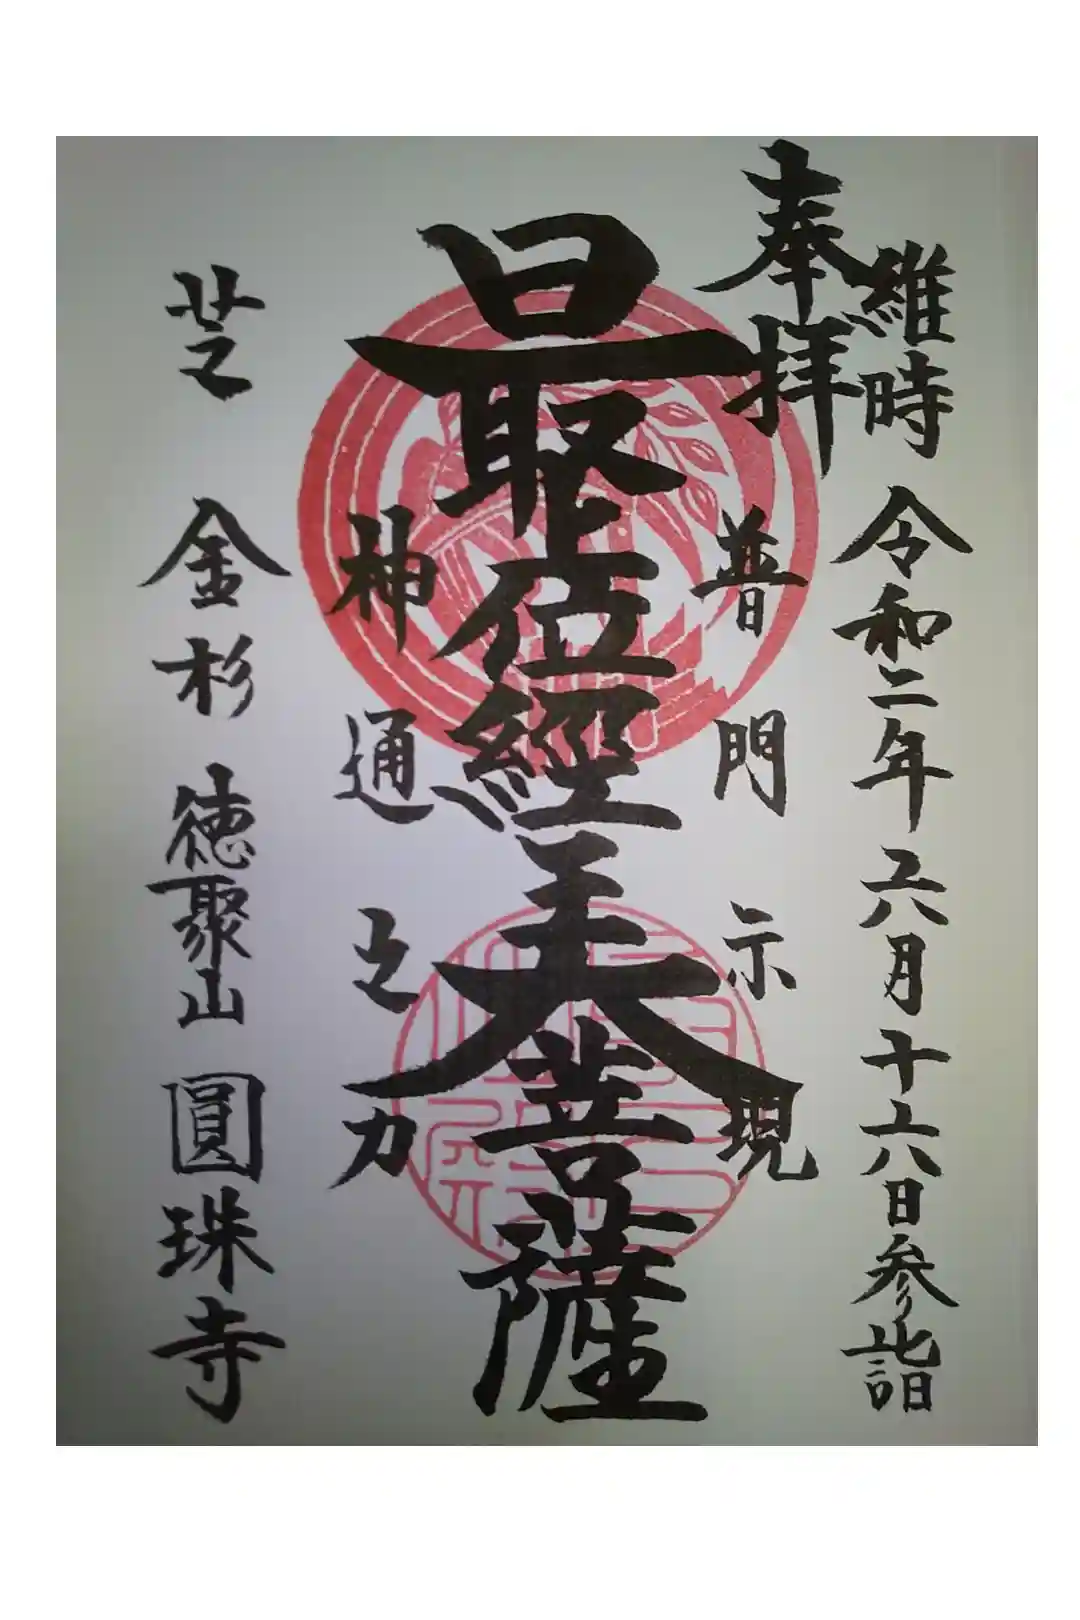 奉拝
維時 令和二年六月十六日参詣
普門示現
最上位經王大菩薩
神通之力
芝 金杉 徳聚山 圓珠寺